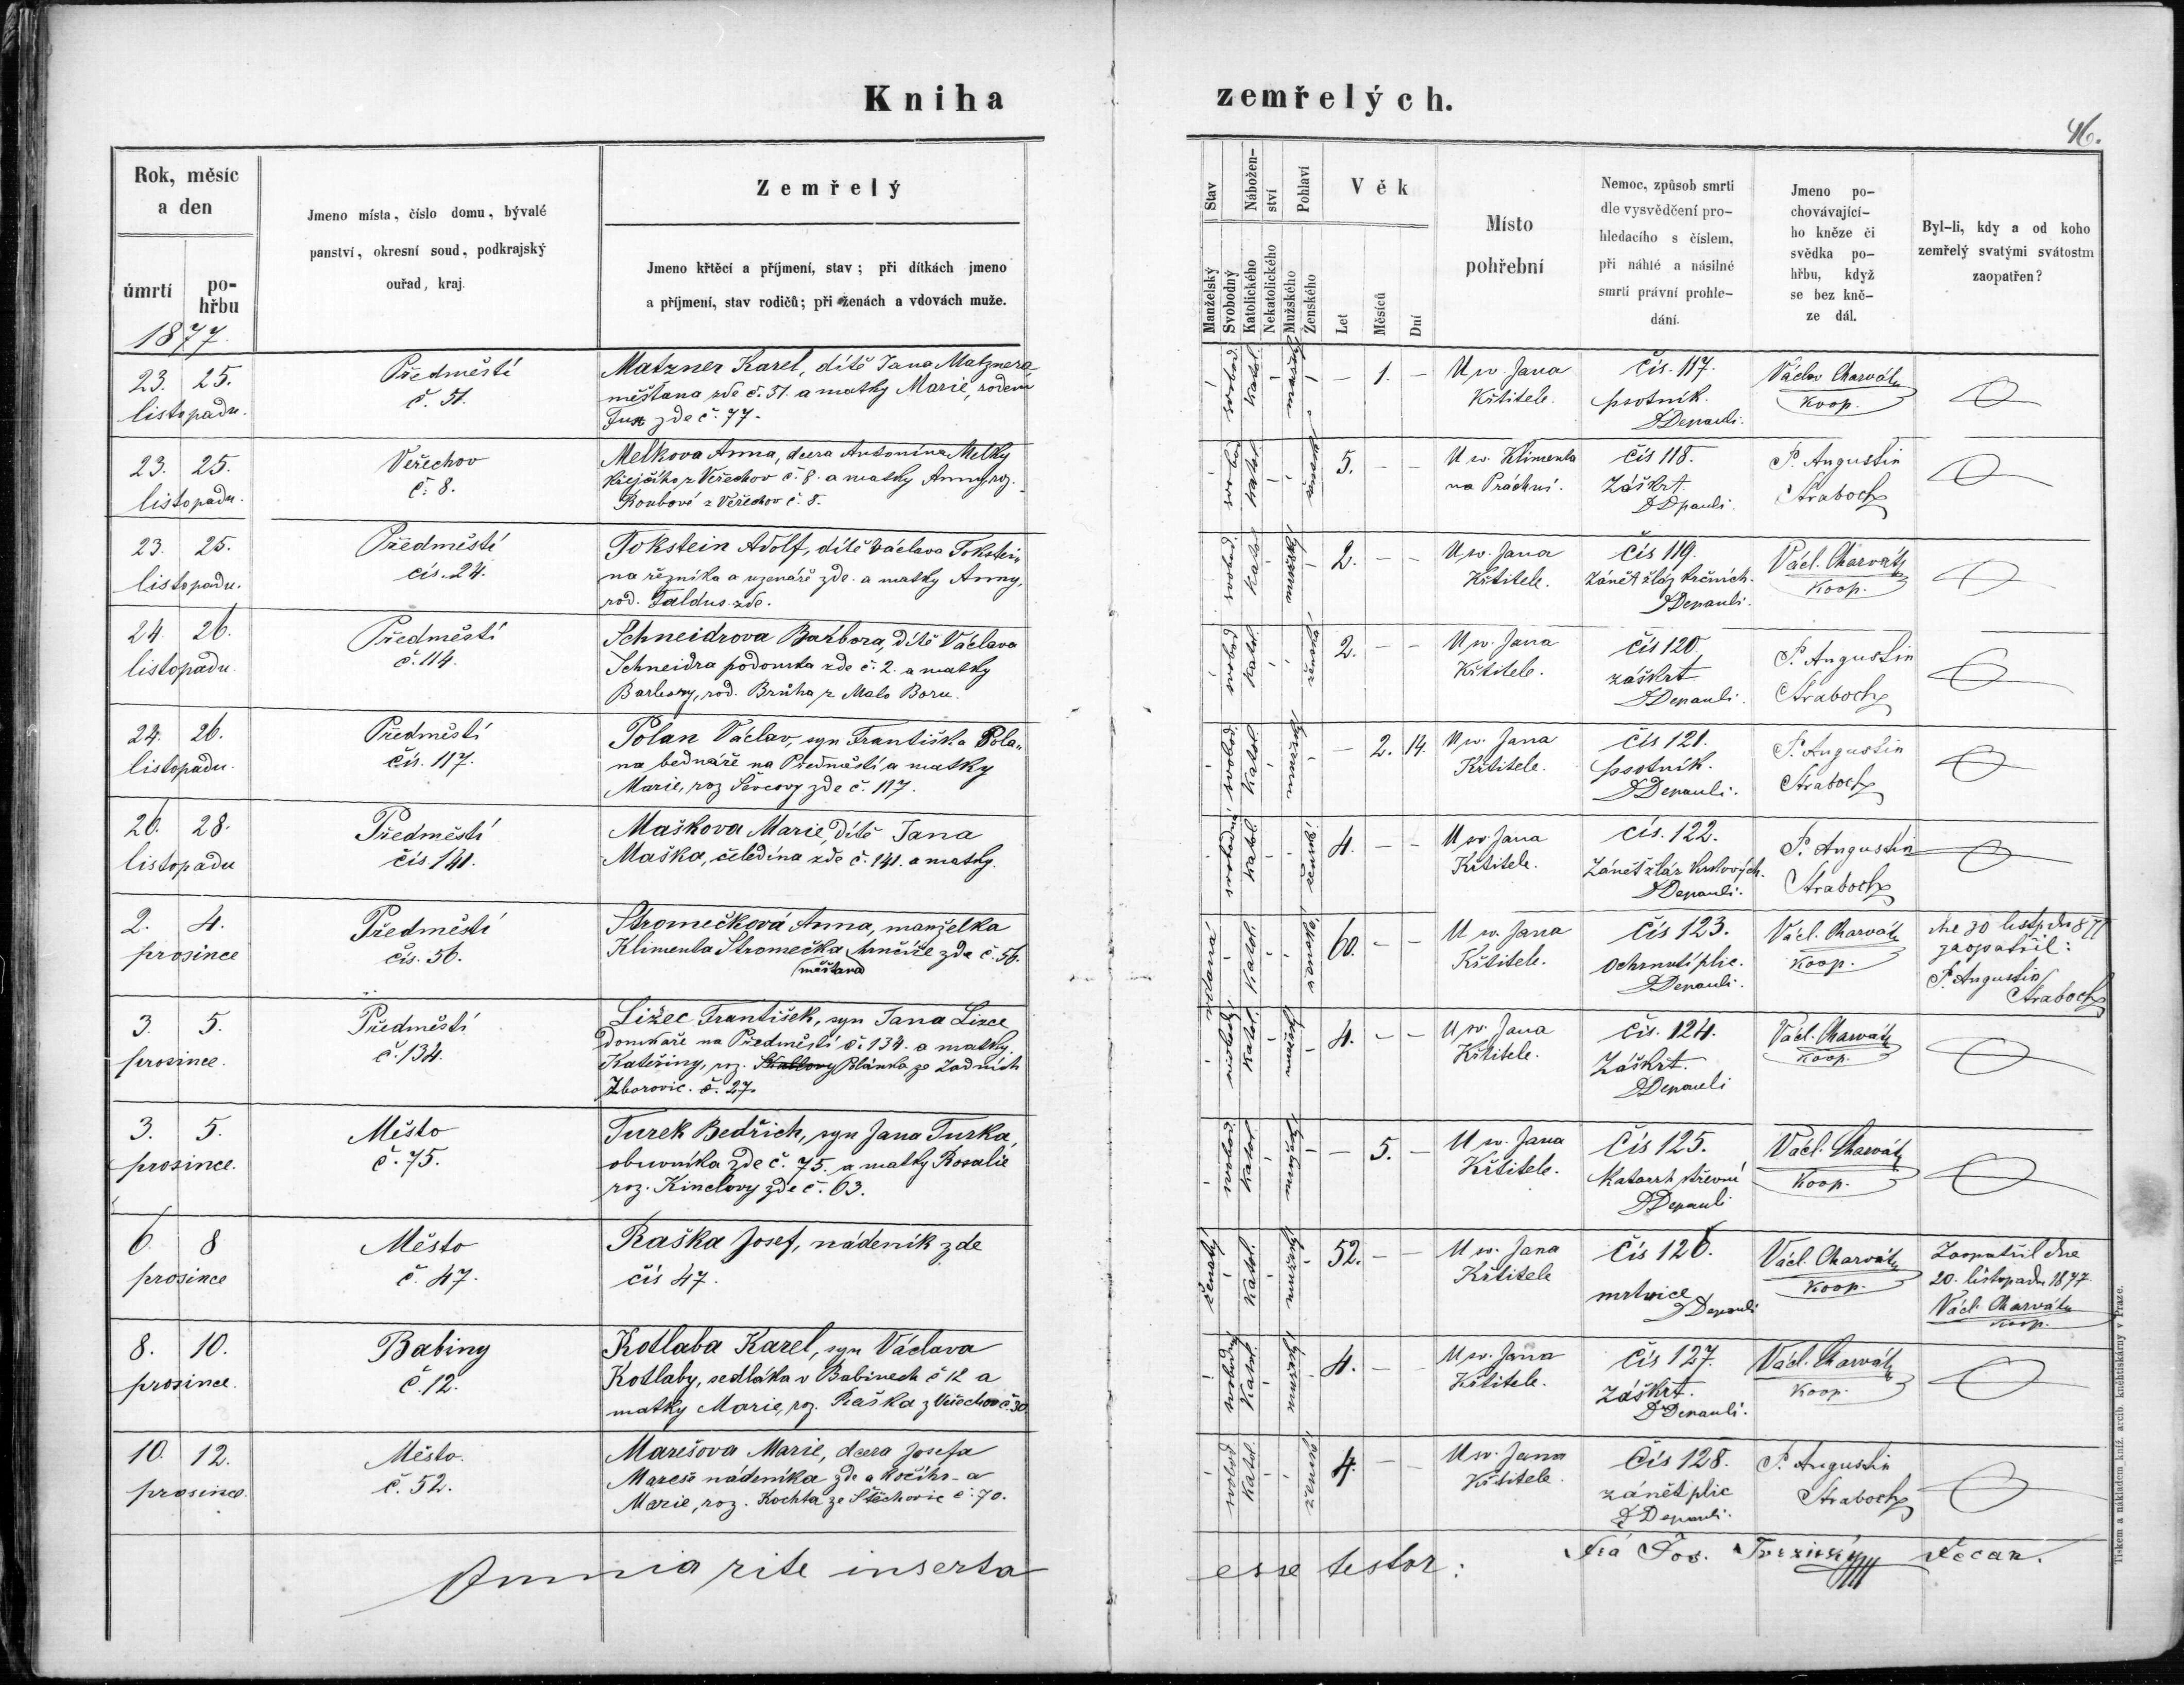 Kniha zemřelých.
46.
Rok, měsíc
a den
úmrtí
po-
hřbu
1877.
Jmeno místa, číslo domu, bývalé
panství, okresní soud, podkrajský
ouřad, kraj.
Zemřelý
Jmeno křtěcí a příjmení, stav; při dítkách jmeno
a příjmení, stav rodičů; při ženách a vdovách muže.
Stav
Manželský
Svobodný
Nábožen-
ství
Katolického
Nekatolického
Pohlaví
Mužského
Ženského
Věk
Let
Měsíců
Dní
Místo
pohřební
Nemoc, způsob smrti
dle vysvědčení pro-
hledacího s číslem,
při náhlé a násilné
smrti právní prohle-
dání.
Jmeno po-
chovávající-
ho kněze či
svědka po-
hřbu, když
se bez kně-
ze dál.
Byl-li, kdy a od koho
zemřelý svatými svátostmi
zaopatřen?
23. 25.
listopadu.
Předměstí
č. 51.
Matzner Karel, dítě Jana Matznera
měšťana zde č. 51. a matky Marie, rodem
zde č. 77.
svobod. katol. 1.
U sv. Jana
Křtitele.
čís. 117.
psotník.
Depauli.
Václav Charvát
koop.
23. 25.
listopadu.
Veřechov
č. 8.
Melkova Anna, dcera Antonína Melky
krejčího z Veřechov č. 8. a matky Anny, roz.
Roubové z Veřechov č. 8.
svobod katol 5.
U sv. Klimenta
na Práchni.
čís 118.
Záškrt.
Depauli.
P. Augustin
Straboch
23. 25.
listopadu.
Předměstí
čís. 24.
Tokstein Adolf, dítě Václava Tokstei„
na řezníka a uzenáře zde a matky Anny,
rod. Faldus zde.
svobod. katol 2.
U sv. Jana
Křtitele.
čís 119.
Zánět žláz krčních.
Depauli.
Václ. Charvát
koop.
24. 26.
listopadu.
Předměstí
č. 114.
Schneidrova Barbora, dítě Václava
Schneidra podomka zde č. 2. a matky
Barbory, rod. Brůha z Malo Boru.
svobod katol. 2.
U sv. Jana
Křtitele.
čís 120.
záškrt
Depauli.
P. Augustin
Straboch
24. 26.
listopadu.
Předměstí
čís. 117.
Polan Václav, syn Františka Pola„
na bednáře na Předměstí, a matky
Marie, roz Ševcovy zde č. 117.
svobod. katol. 2. 14.
U sv. Jana
Křtitele.
čís 121.
psotník.
Depauli.
P. Augustin
Straboch
26. 28.
listopadu
Předměstí
čís 141.
Maškova Marie, dítě Jana
Maška, čeledína zde č. 141. a matky.
svobodná katol 4.
U sv. Jana
Křtitele.
čís. 122.
Depauli.
P. Augustin
Straboch
2. 4.
prosince
Předměstí
čís. 56.
Stromečková Anna, manželka
Klimenta Stromečka hrnčíře zde č. 56.
měšťana
vdaná katol. 60.
U sv. Jana
Křtitele.
čís 123.
ochrnutí plic.
Depauli.
Václ. Charvát
koop.
dne 30 listp. 877
zaopatřil:
P. Augustin
Straboch
3. 5.
prosince.
Předměstí
č. 134.
Ližec František, syn Jana Lizce
domkáře na Předměstí č. 134. a matky
Kateřiny, roz. Blánka ze Zadních
Zborovic. č. 27.
svobodý katol. 4.
U sv. Jana
Křtitele.
čís. 124.
Záškrt.
Depauli
Václ. Charvát
koop.
3. 5.
prosince.
Město
č. 75.
Turek Bedřich, syn Jana Turka,
obuvníka zde č. 75. a matky Rosalie
roz. Kinclovy zde č. 63.
svobod. katol 5.
U sv. Jana
Křtitele.
čís 125.
Katarrh střevní
Depauli
Václ. Charvát
koop.
6. 8
prosince
Město
č. 47.
Raška Josef, nádeník zde
čís 47.
ženatý katol. 52.
U sv. Jana
Křtitele
čís 126.
mrtvice
Depauli
Václ. Charvát
koop.
Zaopatřil dne
20. listopadu 1877.
Václ. Charvát
koop.
8. 10.
prosince.
Babiny
č. 12.
Kotlaba Karel, syn Václava
Kotlaby, sedláka v Babinech č 12 a
matky Marie, roz. Raška z Veřechov č. 30.
svobodný katol. 4.
U sv. Jana
Křtitele.
čís 127.
záškrt.
Depauli.
Václ. Charvát
koop.
10. 12.
prosince.
Město.
č. 52.
Marešova Marie, dcera Josefa
Mareše nádeníka zde a kočího a
Marie, roz. Kochta ze Štěchovic č. 70.
svobod katol. 4.
U sv. Jana
Křtitele.
čís 128.
zánět plic
Depauli.
P. Augustin
Straboch
Omnia rite inserta esse testor: děkan.
Tiskem a nákladem kníž. arcib. kněhtiskárny v Praze.